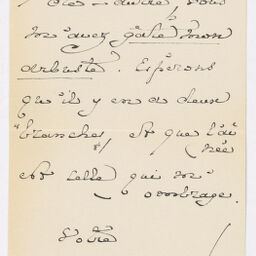 vous
m'avez gâté mon
arbuste. Espérons
qu'il y en a deux
"branches", et que l'ai
née
est celle qui m'
ombrage.
Votre